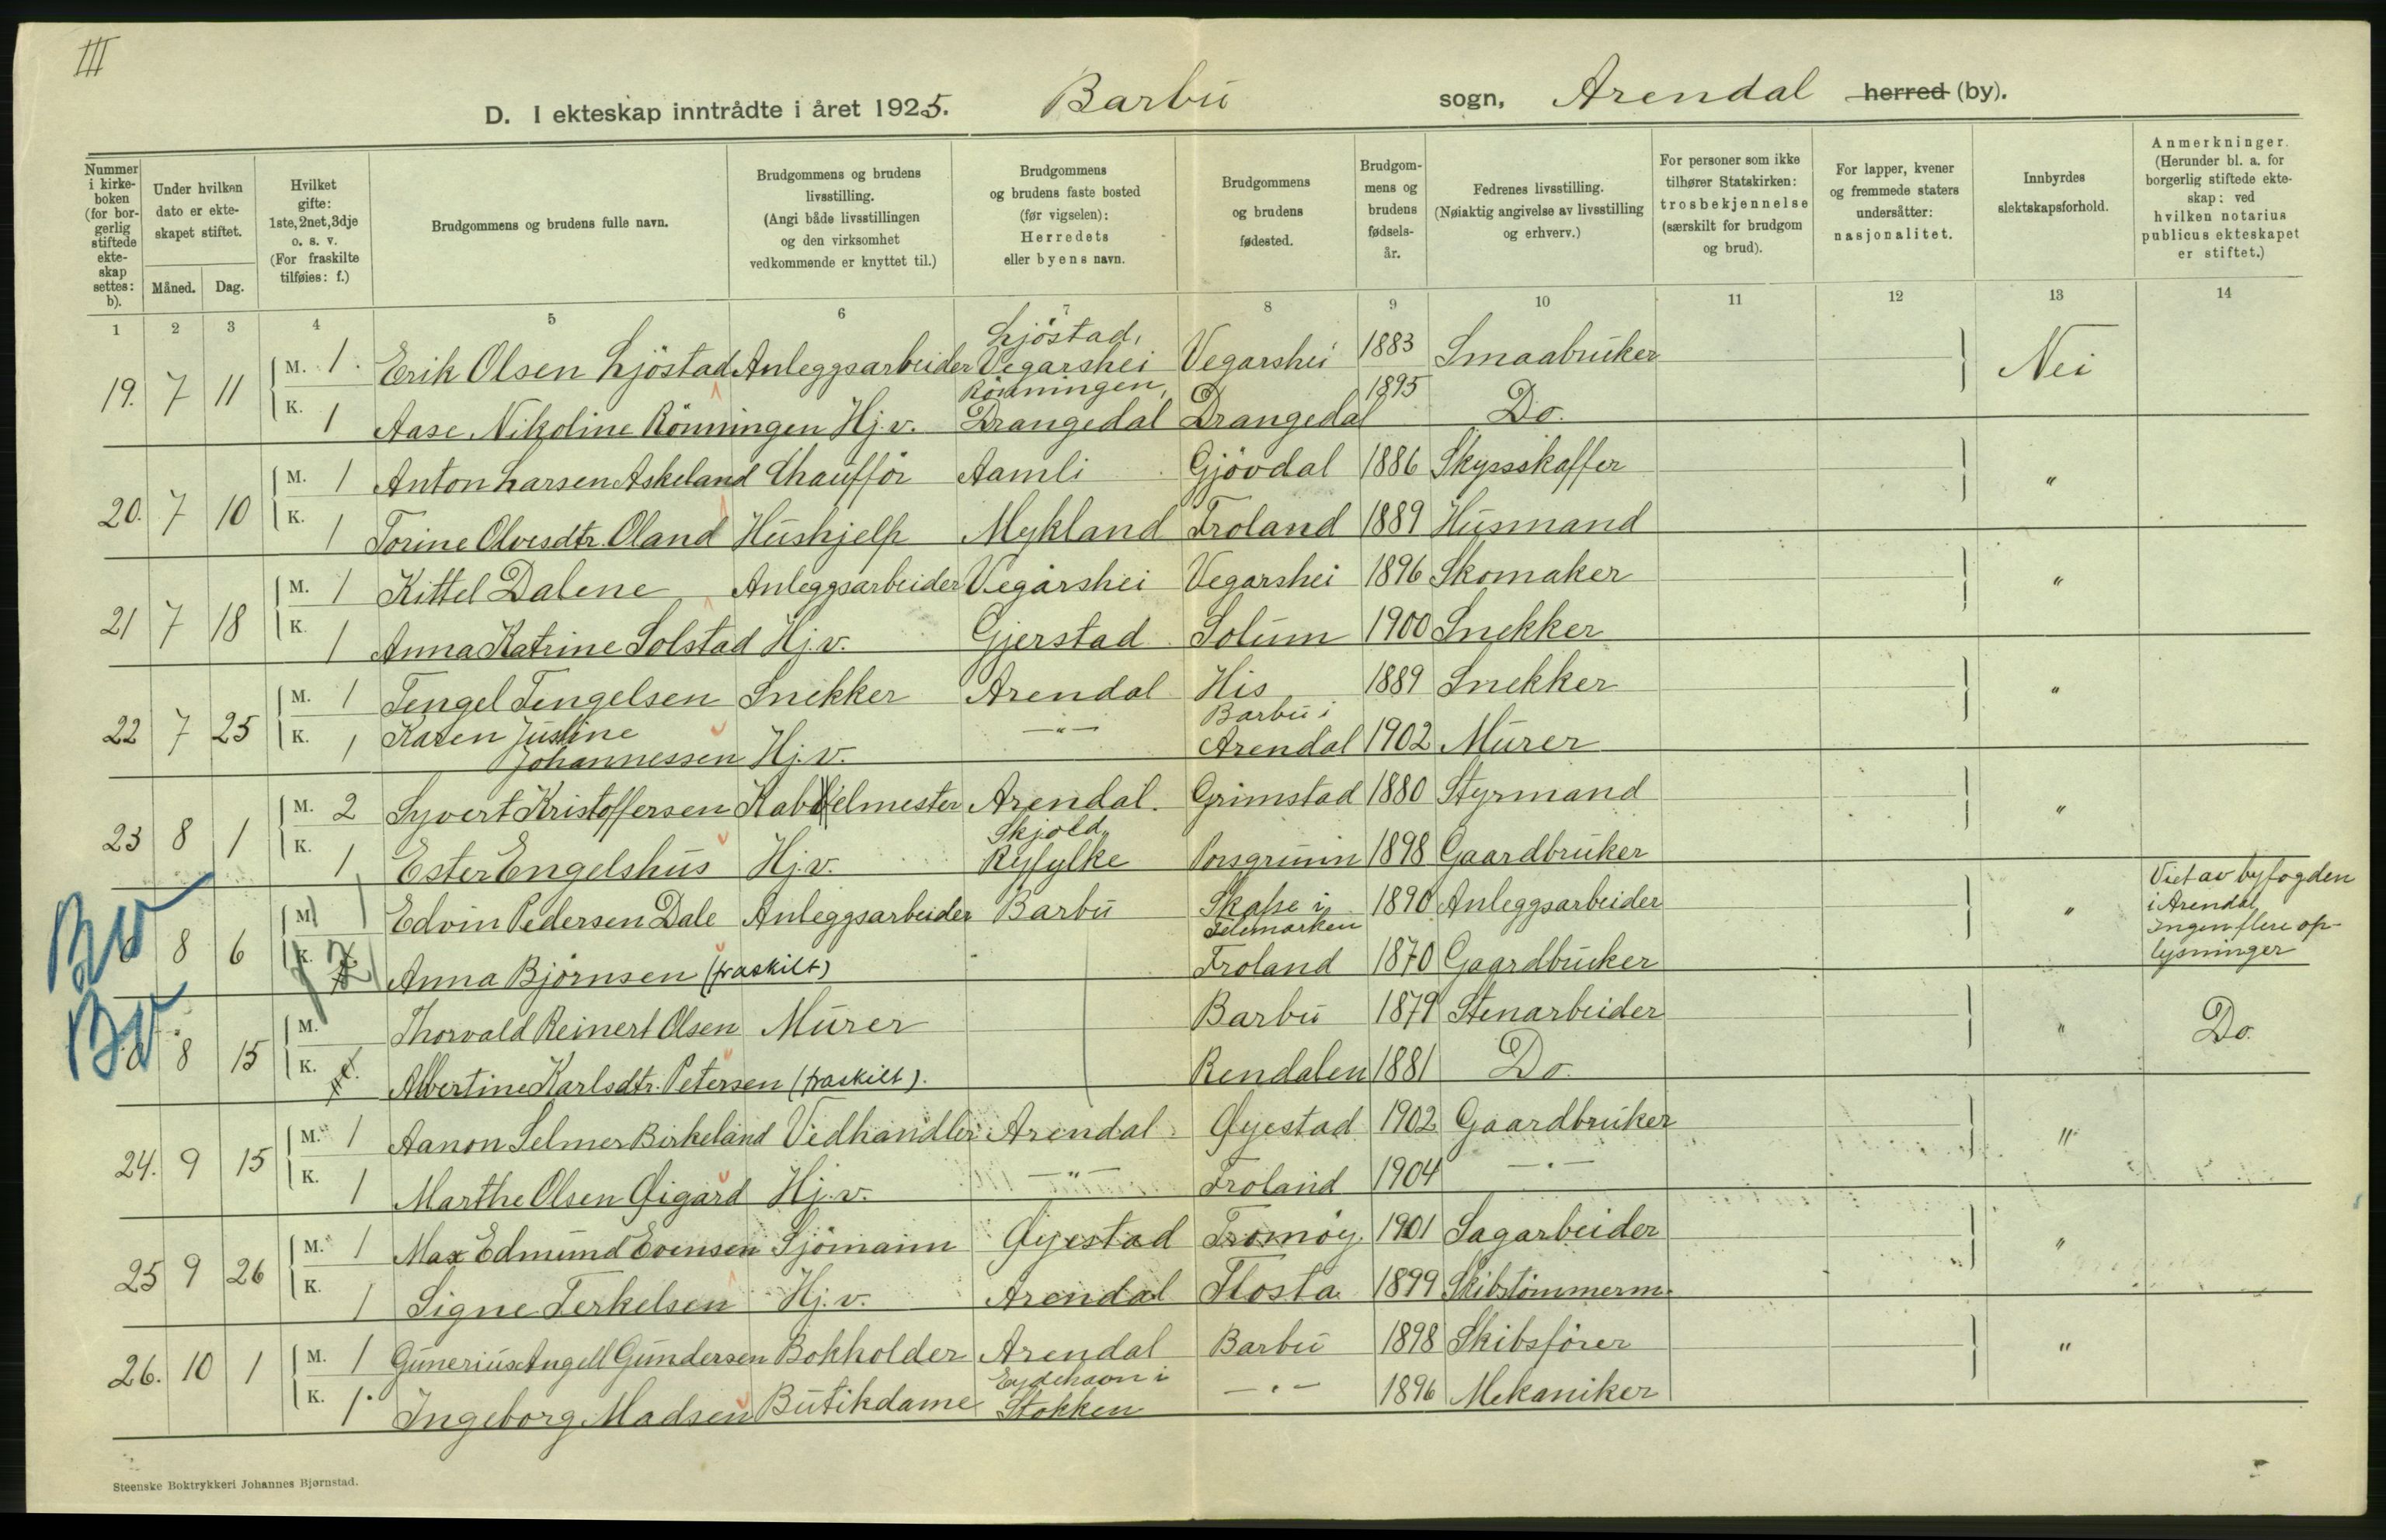 III
D. I ekteskap inntrådte i året 1925. Barbu sogn, Arendal herred (by).
Nummer i kirkeboken (for borgerlig stiftede ekteskap settes: b).
Under hvilken dato er ekteskapet stiftet.
Måned. Dag.
Hvilket gifte: 1ste, 2net, 3dje o. s. v. (For fraskilte tilføies: f.)
Brudgommens og brudens fulle navn.
Brudgommens og brudens livsstilling. (Angi både livsstillingen og den virksomhet vedkommende er knyttet til.)
Brudgommens og brudens faste bosted (før vigselen): Herredets eller byens navn.
Brudgommens og brudens fødested.
Brudgommens og brudens fødselsår.
Fedrenes livsstilling. (Nøiaktig angivelse av livsstilling og erhverv.)
For personer som ikke tilhører Statskirken: trosbekjennelse (særskilt for brudgom og brud).
For lapper, kvener og fremmede staters undersåtter: nasjonalitet.
Innbyrdes slektskapsforhold.
Anmerkninger. (Herunder bl. a. for borgerlig stiftede ekteskap: ved hvilken notarius publicus ekteskapet er stiftet.)
1 2 3 4 5 6 7 8 9 10 11 12 13 14
19. 7 11 M. 1. Erik Olsen Ljöstad Anleggsarbeider Ljöstad, Vegarshei Vegarshei 1883 Smaabruker Nei
K. 1 Aase Nikoline Rönningen Hj.v. Rönningen, Drangedal Drangedal 1895 Do.
20. 7 10 M. 1 Anton Larsen Askeland Chaufför Aamli Gjövdal 1886 Skyssskaffer "
K. 1 Torine Olvesdtr. Oland Hushjelp Mykland Froland 1889 Husmand
21 7 18 M. 1 Kittel Dalene Anleggsarbeider Vegårshei Vegarshei 1896 Skomaker "
K. 1 Anna Katrine Solstad Hj.v. Gjerstad Solum 1900 Snekker
22 7 25 M. 1 Tengel Tengelsen Snekker Arendal His 1889 Snekker "
K. 1 Karen Justine Johannessen Hj.v. —"— Barbu i Arendal 1902 Murer
23 8 1 M. 2 Syvert Kristoffersen Kabbelmester Arendal. Grimstad 1880 Styrmand "
K. 1 Ester Engelshus Hj.v. Skjold, Ryfylke Porsgrunn 1898 Gaardbruker
BV 8 6 M. 1 Edvin Pedersen Dale Anleggsarbeider Barbu Skafse i Telemarken 1890 Anleggsarbeider " Viet av byfogden i Arendal Ingen flere oplysninger
K. 2 Anna Björnsen (fraskilt) Froland 1870 Gaardbruker
BV 8 15 M. Thorvald Reinert Olsen Murer Barbu 1879 Stenarbeider " Do.
K. Albertine Karlsdtr. Petersen (fraskilt). Rendalen 1881 Do.
24. 9 15 M. 1 Aanon Selmer Birkeland Vedhandler Arendal Øyestad 1902 Gaardbruker "
K. 1 Marthe Olsen Øigard Hj.v. —"— Froland 1904 —"—
25 9 26 M. 1 Max Edmund Evensen Sjömann Øyestad Tromöy. 1901 Sagarbeider "
K. 1 Signe Terkelsen Hj.v. Arendal Flosta 1899 Skibstömmerm.
26. 10 1 M. 1 Gunerius Angell Gundersen Bokholder Arendal Barbu 1898 Skibsförer "
K. 1. Ingeborg Madsen Butikdame Eydehavn i Stokken —"— 1896 Mekaniker
Steenske Boktrykkeri Johannes Bjørnstad.